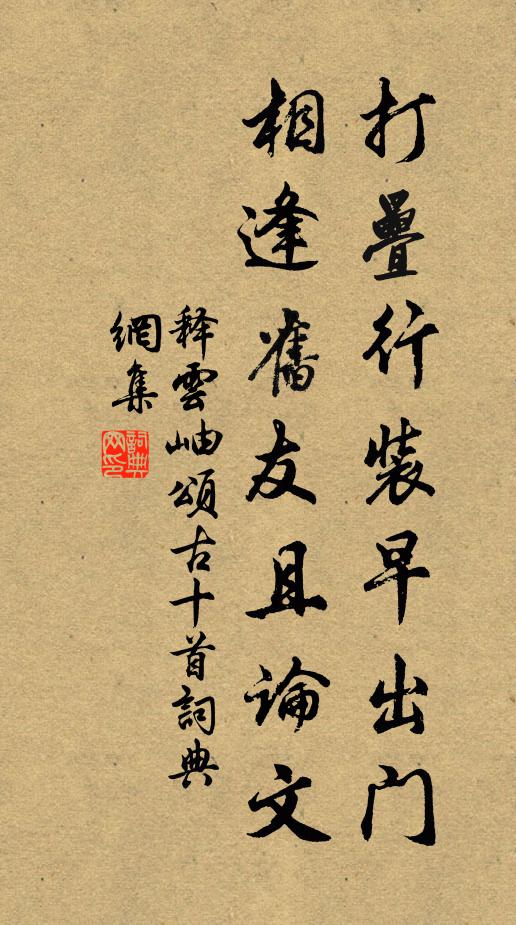 打疊行裝早出門
相逢舊友且論文
释雲岫頌古十首詞典
網集
詞典
网印